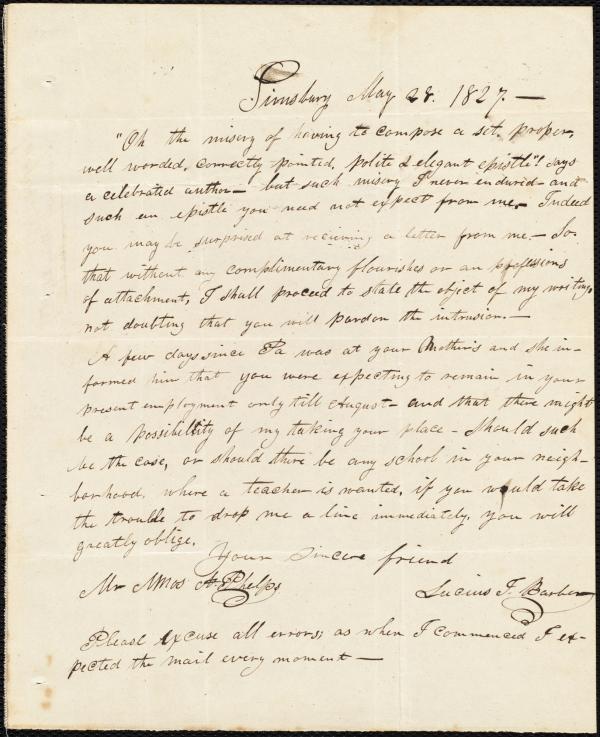 Simsbury May 28. 1827. —
"Oh the misery of having to compose a set, proper,
well worded, correctly pointed, polite & elegant epistle"! says
a celebrated author — but such misery I never endured — and
such an epistle you need not expect from me. — Indeed
you may be surprised at recieving a letter from me. — So
that without any complimentary flourishes or an professions
of attachment, I shall proceed to state the object of my writing,
not doubting that you will pardon the intrusion. —
A few days since Pa was at your Mothers and she in-
formed him that you were expecting to remain in your
present employment only till August — and that there might
be a possibility of my taking your place — Should such
be the case, or should there be any school in your neigh-
borhood, where a teacher is wanted, if you would take
the trouble to drop me a line immediately, you will
greatly oblige.
Your sincere friend
Mr Amos A. Phelps
Lucius I. Barber
Please excuse all errors; as when I commenced I ex-
pected the mail every moment —